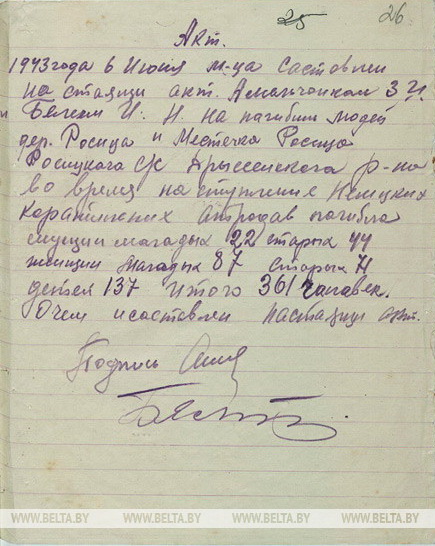 25 26
Акт.
1943 года 6 Июня м-ца саставлен
на стаящи акт. Амальчонком З И.
и Бегсом И. Н. на пагибши людей
дер. Росица и Местечка Росица
Росицкого С/С Дрыссенского р-на
во время на ступление Немецких
каратильных атродав пагибла
мущин магадых 22 старых 44
женщин магадых 87 старых 71
детей 137 Итого 361 чаловек.
Очем исаставлен настаящи акт.
Подпись
WWW.BELTA.BY WWW.BELTA.BY WWW.BELTA.BY WWW.BELTA.BY